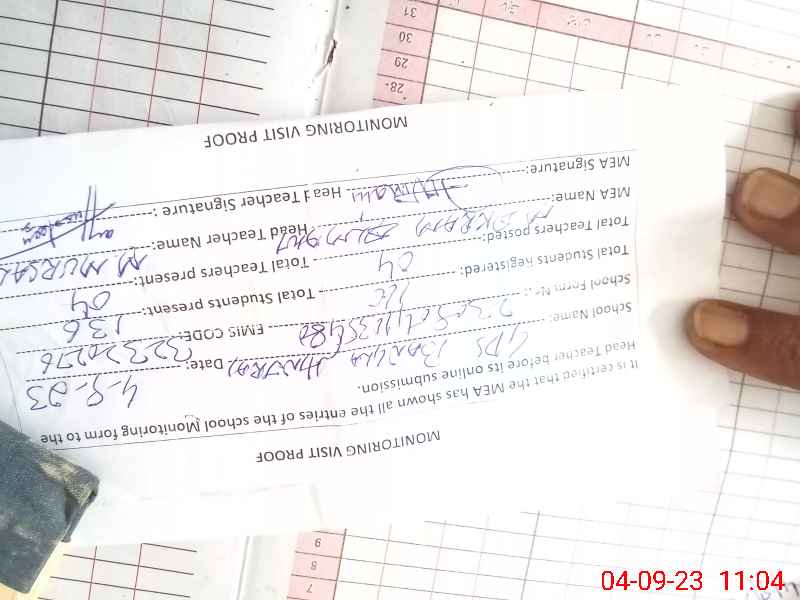 MONITORING VISIT PROOF
It is certified that the MEA has shown all the entries of the school Monitoring form to the
Head Teacher before its online submission.
School Name: GPS BANGLA Date: 4-9-23
School Form No: EMIS CODE: 32330276
Total Students Registered: Total Students present: 136
Total Teachers posted: 04 Total Teachers present: 04
MEA Name: M AKRAM Head Teacher Name: M MURSAL
MEA Signature: Head Teacher Signature:
MONITORING VISIT PROOF
7
8
9
28
29
30
31
04-09-23 11:04